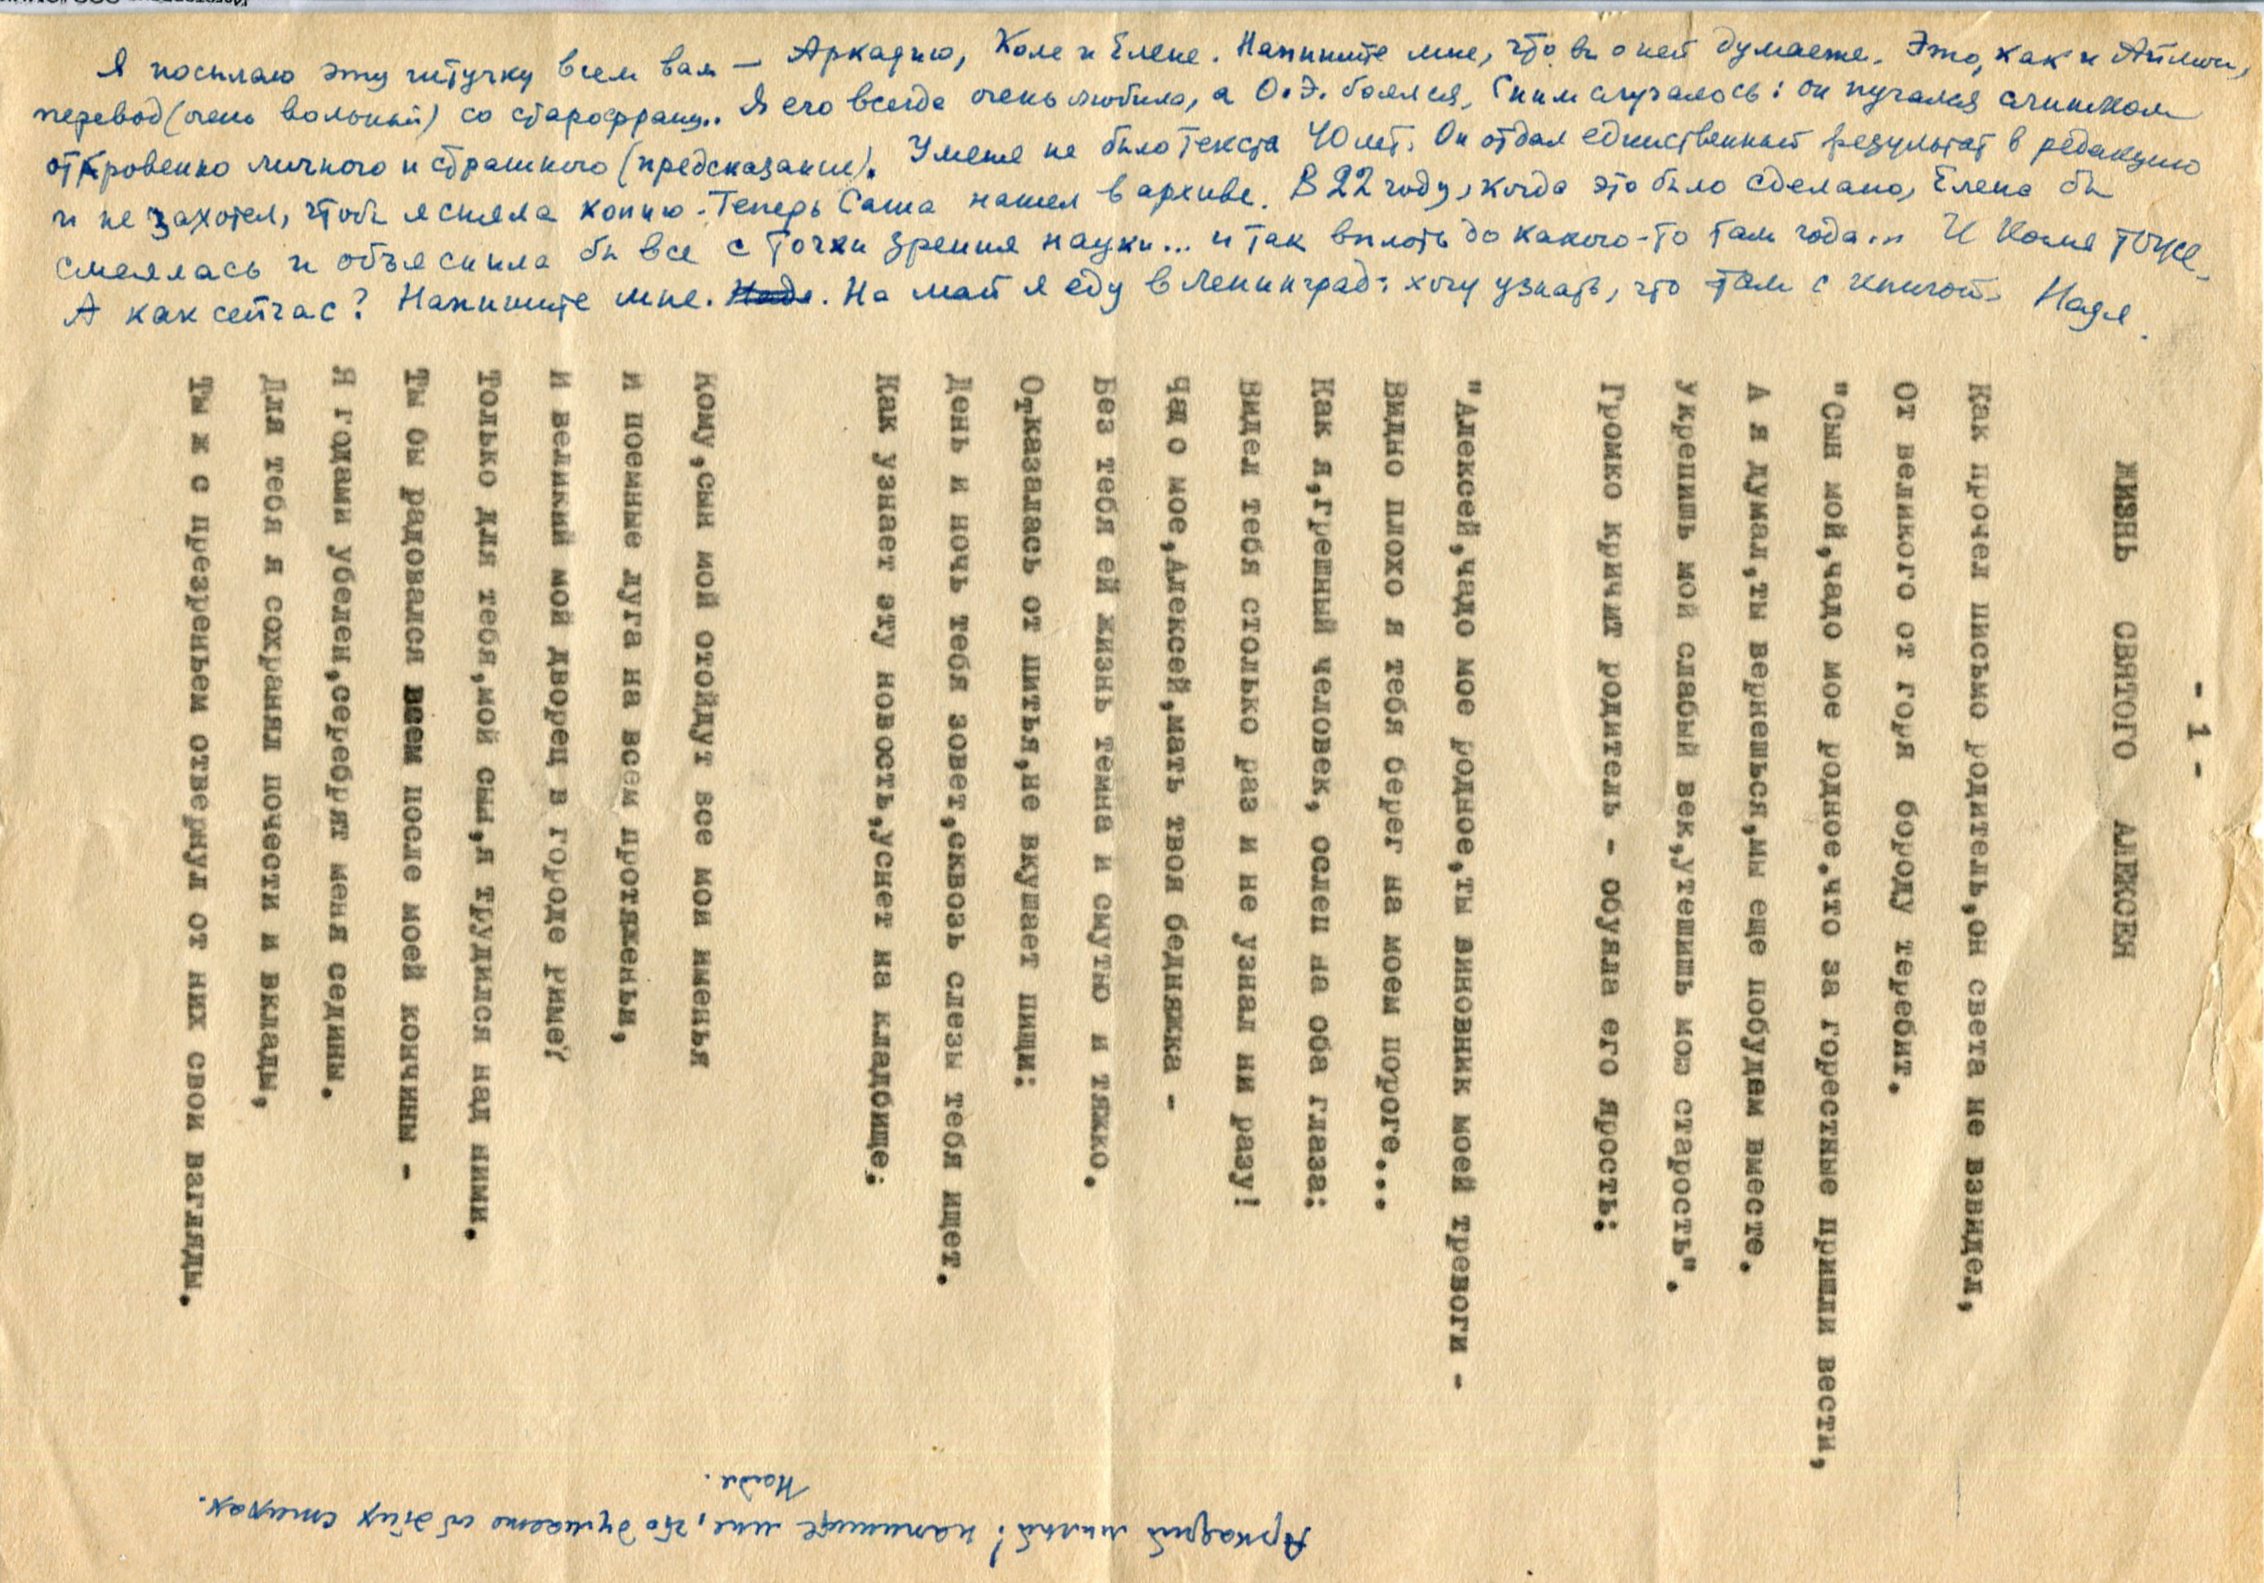 Я посылаю эту штучку всем вам — Аркадию, Коле и Елене. Напишите мне, что вы о ней думаете. Это, как и Алисканс,
перевод (очень вольный) со старофранц.. Я его всегда очень любила, а О.Э. боялся. С ним случалось: он пугался слишком
откровенно личного и страшного (предсказание). У меня не было текста 40 лет. Он отдал единственный результат в редакцию
и не захотел, чтобы я сняла копию. Теперь Саша нашел в архиве. В 22 году, когда это было сделано, Елена бы
смеялась и объяснила бы все с точки зрения науки... и так вплоть до какого-то там года... И Коля тоже.
А как сейчас? Напишите мне. Надя. На май я еду в Ленинград: хочу узнать, что там с книгой. Надя.
- 1 -
ЖИЗНЬ СВЯТОГО АЛЕКСЕЯ
Как прочел письмо родитель,он света не взвидел,
От великого от горя бороду теребит.
"Сын мой,чадо мое родное.что за горестные пришли вести,
А я думал,ты вернешься,мы еще побудем вместе.
Укрепишь мой слабый век,утешишь мою старость".
Громко кричит родитель - обуяла его ярость:
"Алексей,чадо мое родное,ты виновник моей тревоги -
Видно плохо я тебя берег на моем пороге...
Как я,грешный человек, ослеп на оба глаза:
Видел тебя столько раз и не узнал ни разу!
Чадо мое,Алексей,мать твоя бедняжка -
Без тебя ей жизнь темна и смутно и тяжко.
Отказалась от питья,не вкушает пищи:
День и ночь тебя зовет,сквозь слезы тебя ищет.
Как узнает эту новость,уснет на кладбище.
Кому,сын мой отойдут все мои именья
И поемные луга на всем протяженьи,
И великий мой дворец в городе Риме?
Только для тебя,мой сын,я трудился над ними.
Ты бы радовался всем после моей кончины -
Я годами убелен,серебрят меня седины.
Для тебя я сохранял почести и вклады,
Ты ж с презреньем отвернул от них свои взгляды.
Аркадий милый! напишите мне, что думаете об этих стихах.
Надя.